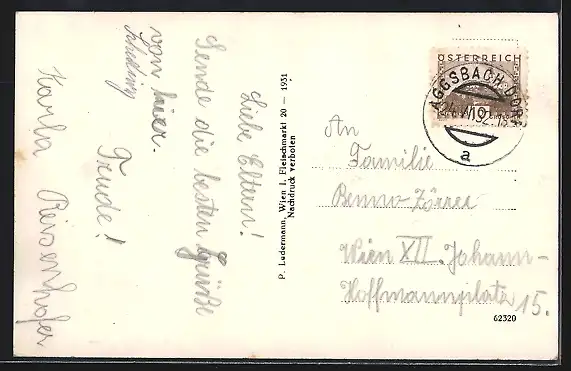 Liebe Eltern!
Sende die besten Grüße
von hier.
Trude!
Karla Reisenhofer
P. Ludermann, Wien I. Fleischmarkt 20 — 1931
Nachdruck verboten
ÖSTERREICH
AGGSBACH DORF
a
An
Familie
Benno
Wien XII. Johann-
Hoffmannplatz 15.
62320